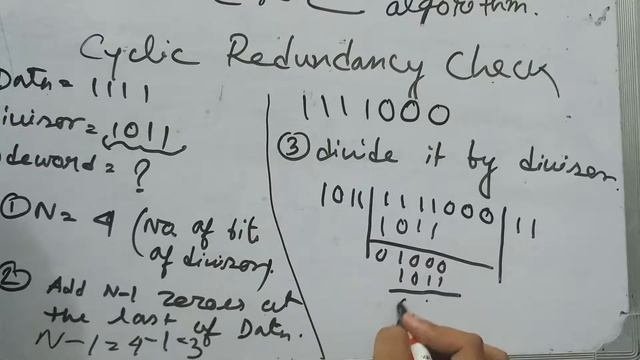 algorithm.
Cyclic Redundancy Check
Data = 1111
ivisor = 1011
deword = ?
① N = 4 (No of bit
of divisor).
② Add N-1 zeroes at
the last of Data.
N-1=4-1=3
1111000
③ divide it by divisor.
1011 1111000 11
1011
01000
1011
0